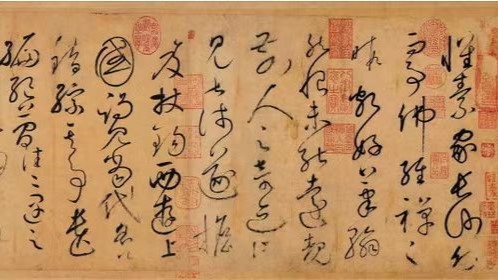 懷素家長沙幼而
事佛經禪之
暇頗好筆翰
然恨未能遠覩
前人之奇迹所
見甚淺遂擔
笈杖錫西遊上
國謁見當代名公
錯綜其事遺
編絕簡往往遇之